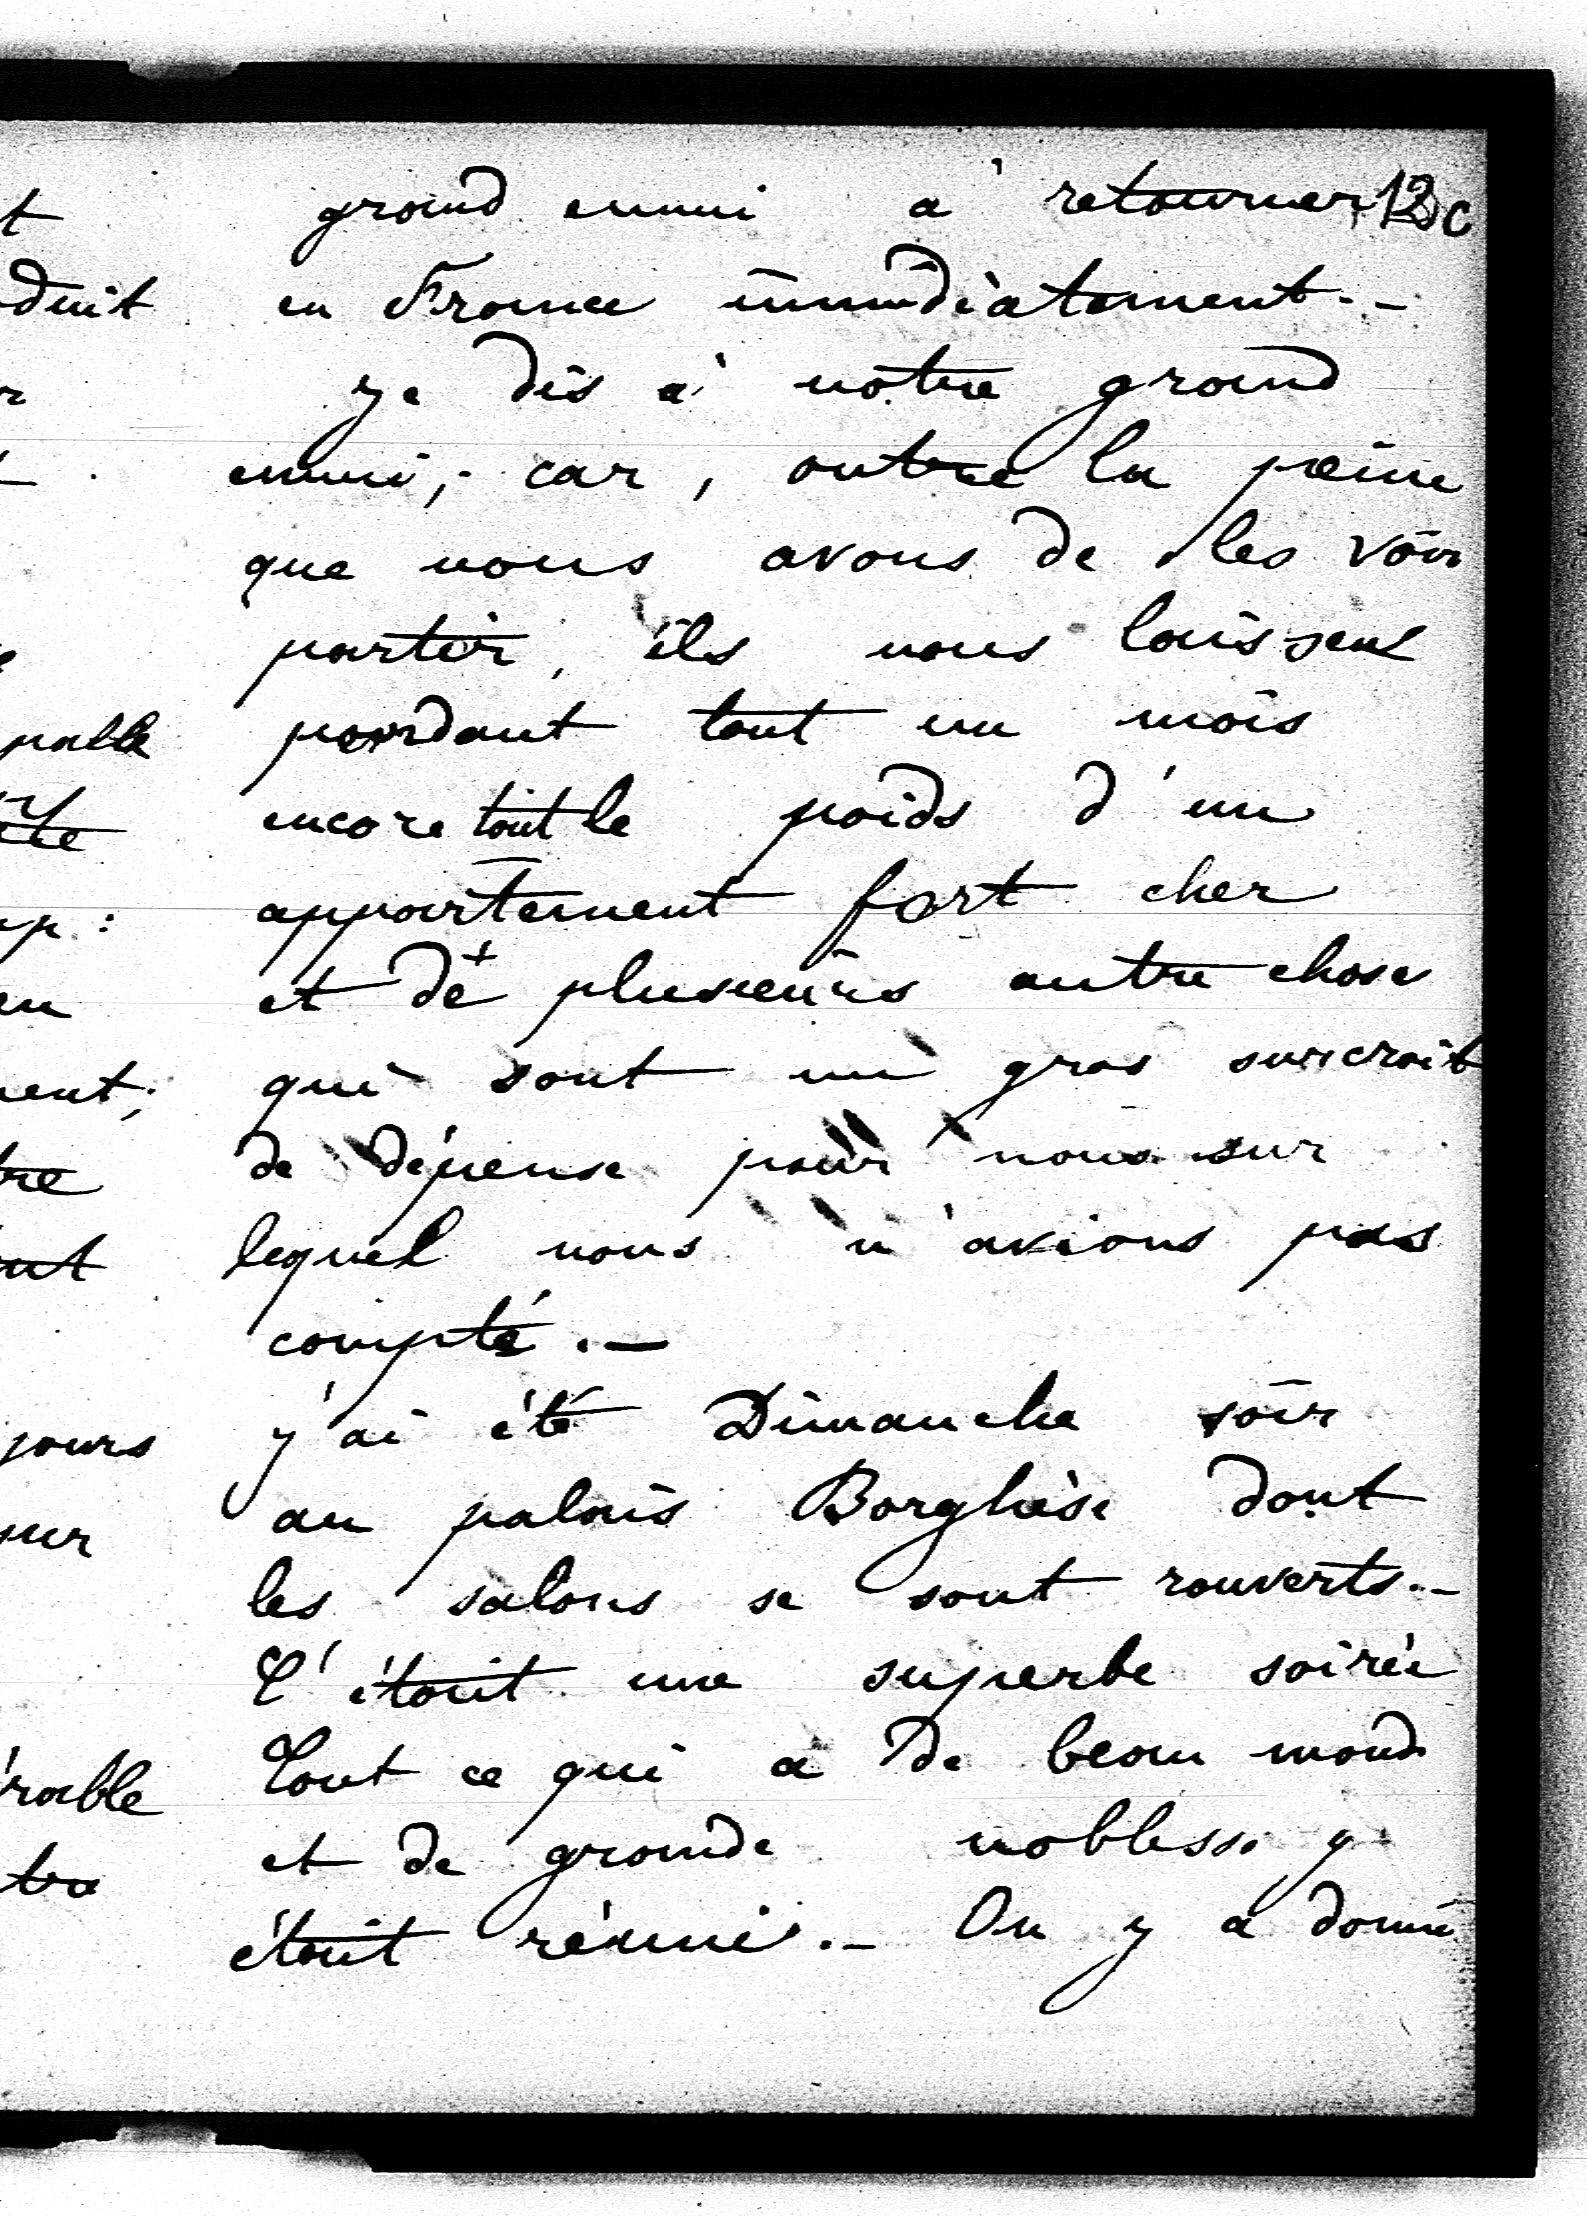 grand ennui à retourner 12c
en France immédiatement.-
Je dis à notre grand
ennui; car, outre la peine
que nous avons de les voir
partir, ils nous laissent
pendant tout un mois
encore tout le poids d'un
appartement fort cher
et de plusieurs autre chose
qui sont un gros surcroit
de dépense pour nous sur
lequel nous n'avions pas
compté.-
J'ai été Dimanche soir
au palais Borghèse dont
les salons se sont rouverts.-
C'était une superbe soirée
Tout ce qui a de beau monde
et de grande noblesse y
était réuni.- On y a donné
t
duit
r
palle
te
up:
en
ment;
tre
ut
jours
pur
érable
tra